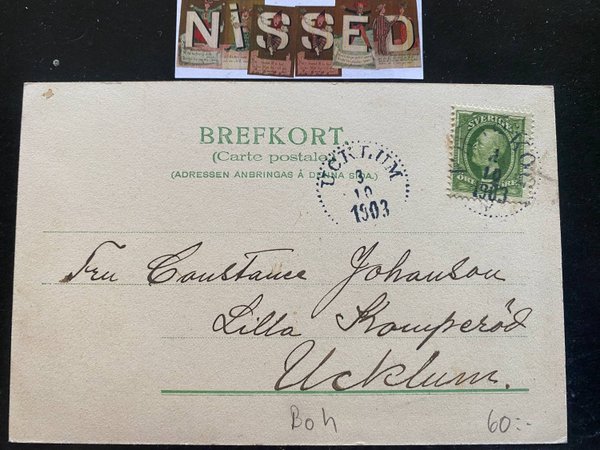 NISSED
BREFKORT
(Carte postale)
(ADRESSEN ANBRINGAS Å DENNA SIDA.)
SVERIGE
UCKLUM
3
10
1903
10
1903
Fru Constance Johanson
Lilla Komperöd
Ucklum.
Boh
60:-